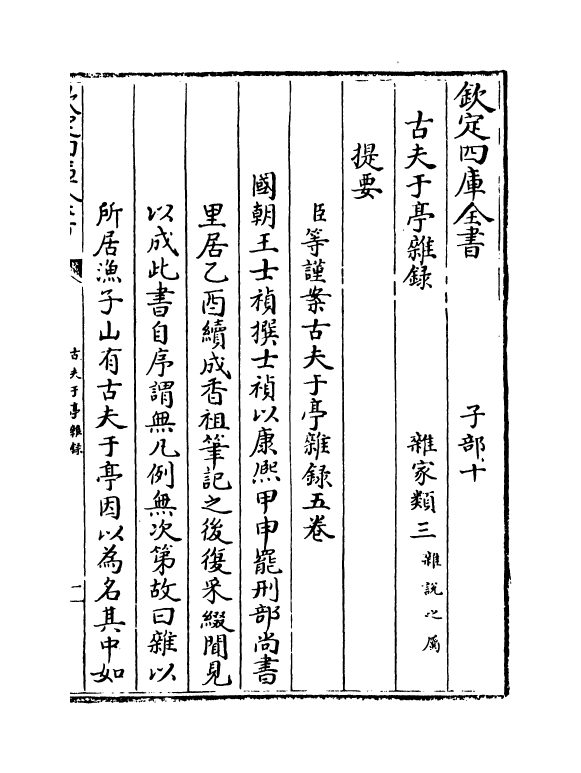 欽定四庫全書
子部十
古夫于亭雜録
雜家類三
雜說之屬
提要
臣等謹案古夫于亭雜録五卷
國朝王士禎撰士禎以康熙甲申罷刑部尚書
里居乙酉續成香祖筆記之後復采綴聞見
以成此書自序謂無凡例無次第故曰雜以
所居漁子山有古夫于亭因以為名其中如
古夫于亭雜録